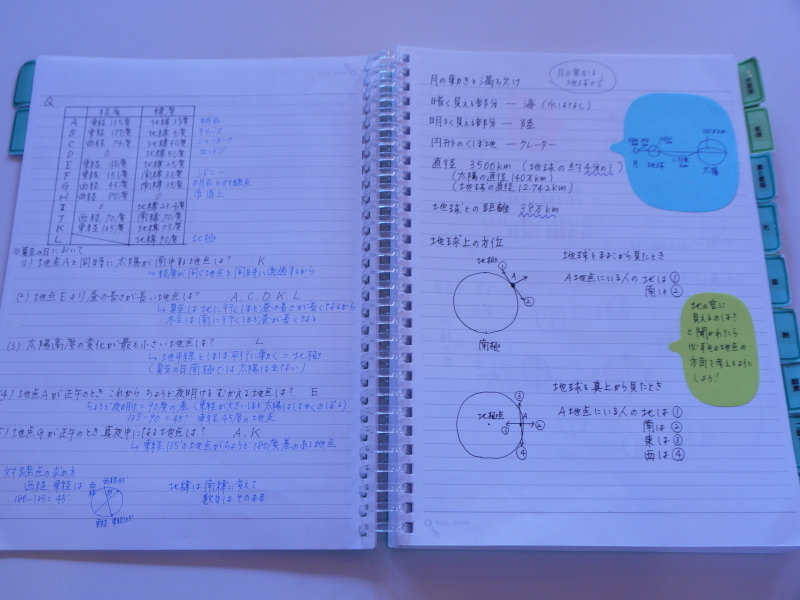 Q
経度 緯度
A 東経135度 北緯35度 明石
B 東経177度 北緯 度
C 西経74度 北緯40度 ニューヨーク
D 0 北緯51度 ロンドン
E 東経45度 北緯25度
F 東経151度 南緯33度 シドニー
G 西経45度 南緯35度 明石の対蹠点
H 西経80度 0 赤道上
I 0 北緯23.4度
J 西経70度 南緯70度
K 東経135度 北緯75度
L 北緯90度 北極
※夏至の日において
(1) 地点Aと同時に太陽が南中する地点は? K
↳ 経度が同じ地点を同時に通過するから
(2) 地点Eより昼の長さが長い地点は? A、C、D、K、L
↳ 夏至は北に行くほど昼の長さが長くなるから
冬至は南に行くほど昼が長くなる
(3) 太陽高度の変化が最も小さい地点は? L
↳ 地平線とほぼ平行に動く = 北極
(夏至の日南極では太陽は出ない)
(4) 地点Aが正午のとき これからちょうど夜明けをむかえる地点は? E
ちょうど夜明け = 90度の差
135-90 = 45° 東経45度の地点
地点Gが正午のとき真夜中になる地点は? A、K
↳ 東経135°の地点がちょうど180度差のある地点
対蹠点の求め方
西経 東経は
180-135=45°
北緯は南緯に変えて
数字はそのまま
月の動きと満ち欠け
月の動きは
暗く見える部分 — 海 (水はなし)
明るく見える部分 — 陸
円形のくぼ地 — クレーター
直径 3500km (地球の約4分の1)
(太陽の直径140万km)
(地球の直径12.742km)
地球との距離 38万km
月 地球 太陽
地球上の方位
地球をよこから見たとき
北極 ① A ②
南極
A地点にいる人の北は①
南は②
北の空に
見えるのは?
と聞かれたら
必ずその地点の
方角を考えるように
しよう!
地球を真上から見たとき
北極点 ① A ② ③ ④
A地点にいる人の北は①
南は②
東は③
西は④